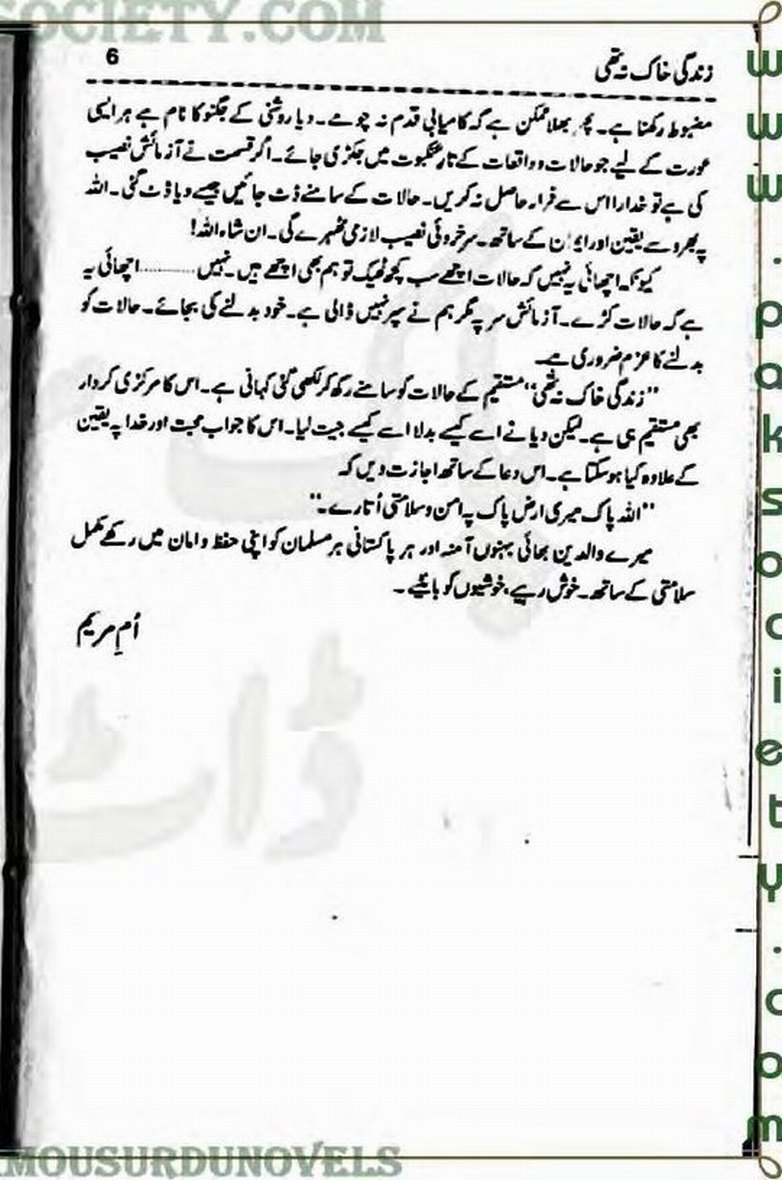 SOCIETY.COM
6
زندگی خاک نہ تھی
مضبوط رکھنا ہے۔ پھر بھلا ممکن ہے کہ کامیابی قدم نہ چومے۔ دیا روشنی کے جگنو کا نام ہے ہر ایسی
عورت کے لیے جو حالات و واقعات کے تار عنکبوت میں جکڑی جائے۔ اگر قسمت نے آزمائش نصیب
کی ہے تو خدارا اس سے فرار حاصل نہ کریں۔ حالات کے سامنے ڈٹ جائیں جیسے دیا ڈٹ گئی۔ اللہ
پہ بھروسے یقین اور ایمان کے ساتھ۔ سرخروئی نصیب لازمی ٹھہرے گی۔ ان شاء اللہ!
کیونکہ اچھائی یہ نہیں کہ حالات اچھے سب کچھ ٹھیک تو ہم بھی اچھے ہیں۔ نہیں ........... اچھائی یہ
ہے کہ حالات کڑے۔ آزمائش سر پہ مگر ہم نے سپر نہیں ڈالی ہے۔ خود بدلنے کی بجائے۔ حالات کو
بدلنے کا عزم ضروری ہے۔
"زندگی خاک نہ تھی" مستقیم کے حالات کو سامنے رکھ کر لکھی گئی کہانی ہے۔ اس کا مرکزی کردار
بھی مستقیم ہی ہے۔ لیکن دیا نے اسے کیسے بدلا اسے کیسے جیت لیا۔ اس کا جواب محبت اور خدا پہ یقین
کے علاوہ کیا ہو سکتا ہے۔ اس دعا کے ساتھ اجازت دیں کہ
"اللہ پاک میری ارض پاک پہ امن و سلامتی اُتارے۔"
میرے والدین بھائی بہنوں آمنہ اور ہر پاکستانی ہر مسلمان کو اپنی حفظ و امان میں رکھے مکمل
سلامتی کے ساتھ۔ خوش رہیے، خوشیوں کو بانٹیے۔
اُمِ مریم
پاک
ڈاٹ
www.paksociety.com
MOUSURDUNOVELS